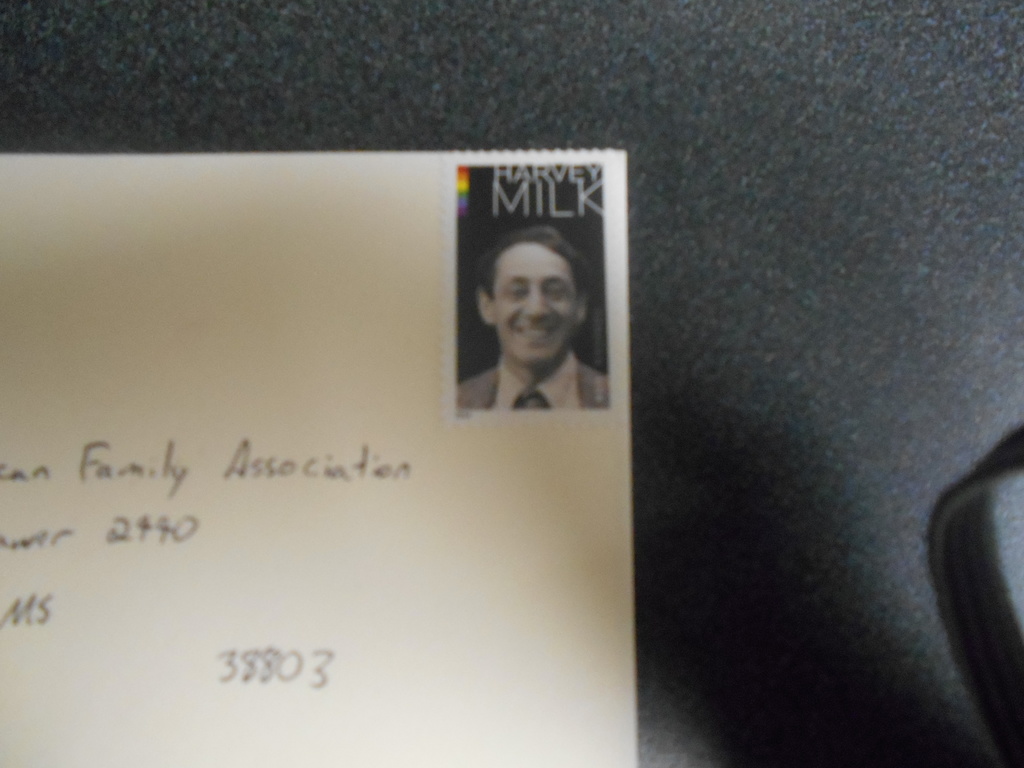 HARVEY
MILK
can Family Association
awer 2440
MS
38803